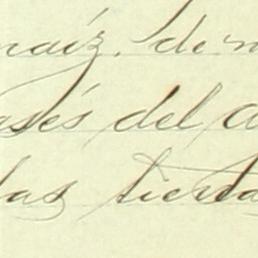 maíz, de m
asés del a
las tierra